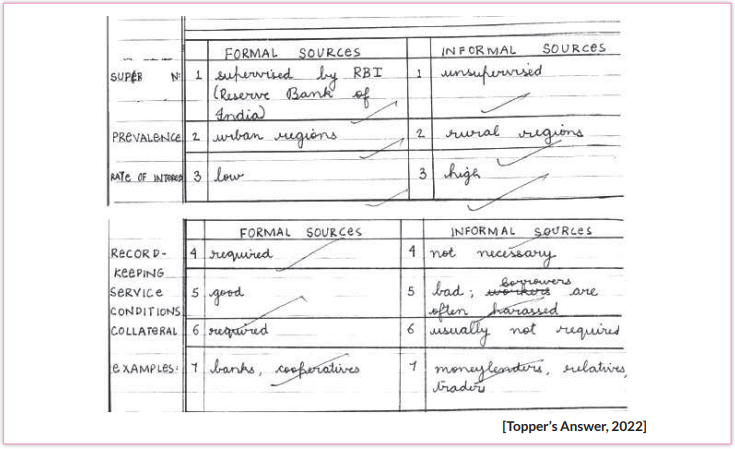 FORMAL SOURCES INFORMAL SOURCES
SUPER N: 1 supervised by RBI 1 unsupervised
(Reserve Bank of
India)
PREVALENCE 2 urban regions 2 rural regions
RATE OF 3 low 3 high
FORMAL SOURCES INFORMAL SOURCES
RECORD- 4 required 4 not necessary
KEEPING
SERVICE 5 good 5 bad; borrowers are
CONDITIONS often harassed
COLLATERAL 6 required 6 usually not required
EXAMPLES: 7 banks, cooperatives 7 moneylenders, relatives,
traders
[Topper's Answer, 2022]